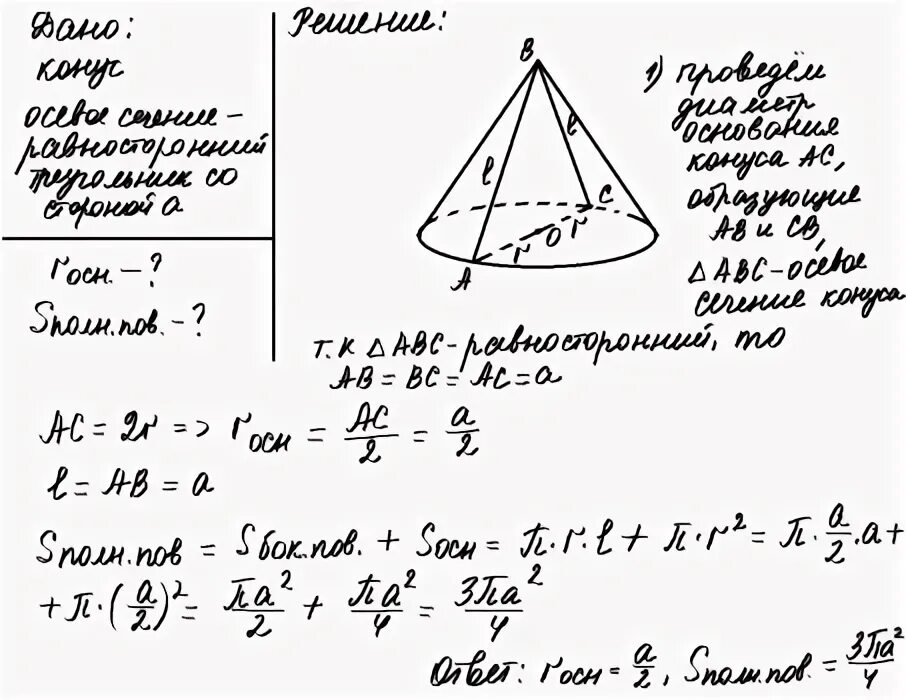 Дано:
конус
осевое сечение –
равносторонний
треугольник со
стороной a
rосн. – ?
Sполн.пов. – ?
Решение:
B
l
l
C
O
r
r
A
1) проведём
диаметр
основания
конуса AC,
образующие
AB и CB,
△ABC – осевое
сечение конуса
т.к △ABC – равносторонний, то
AB = BC = AC = a
AC = 2r => rосн = AC/2 = a/2
l = AB = a
Sполн.пов = Sбок.пов. + Sосн = π·r·l + π·r² = π·a/2·a +
+ π·(a/2)² = πa²/2 + πa²/4 = 3πa²/4
Ответ: rосн = a/2, Sполн.пов. = 3πa²/4